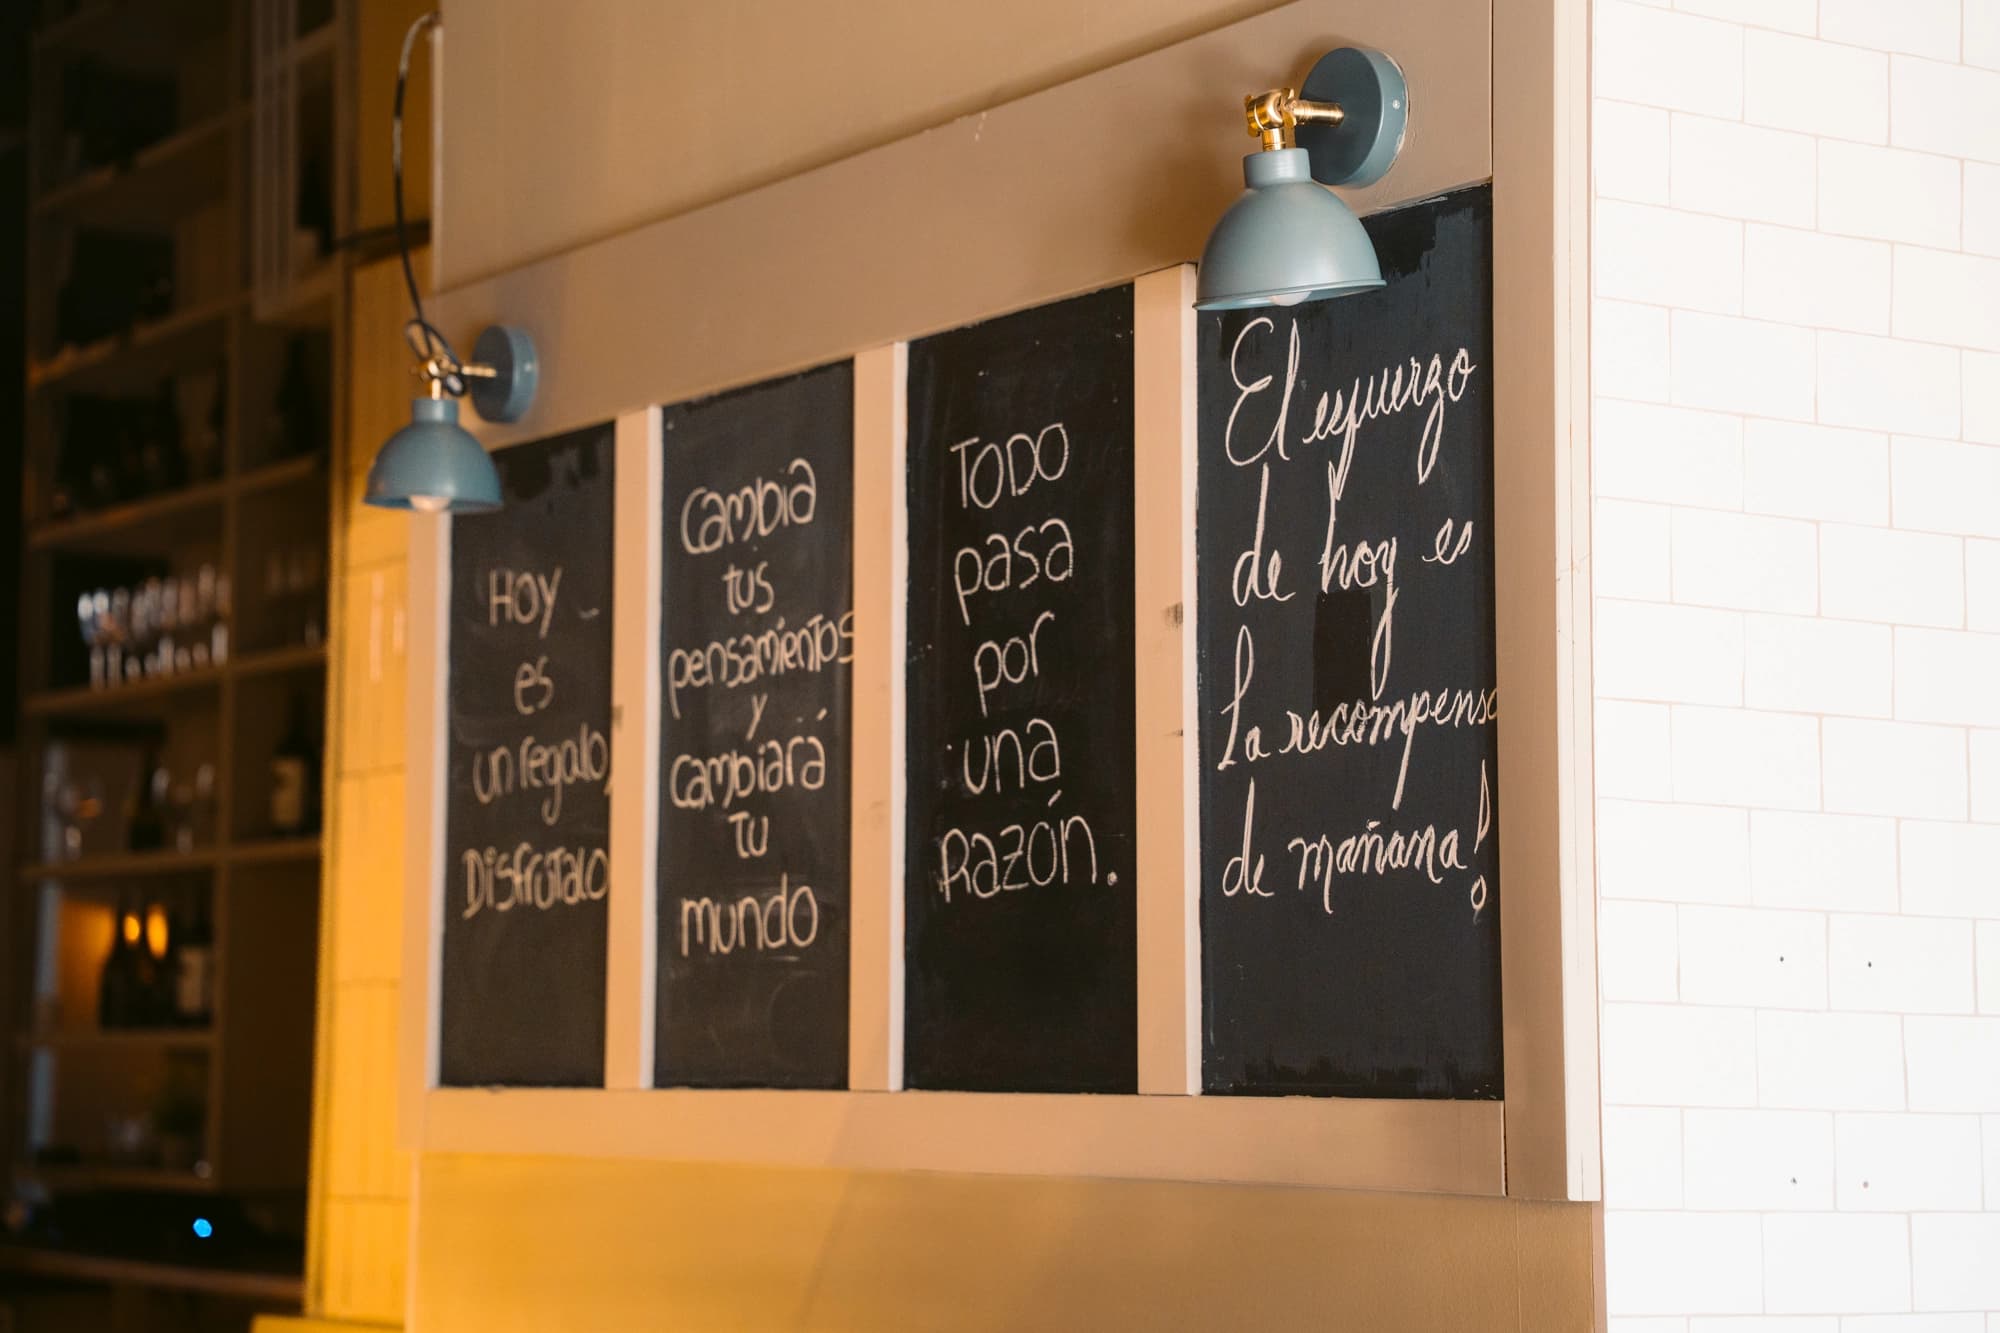 Hoy
es
un regalo,
Disfrútalo
Cambia
tus
pensamientos
y
cambiará
tu
mundo
Todo
pasa
por
una
Razón.
El esfuerzo
de hoy es
La recompensa
de mañana!